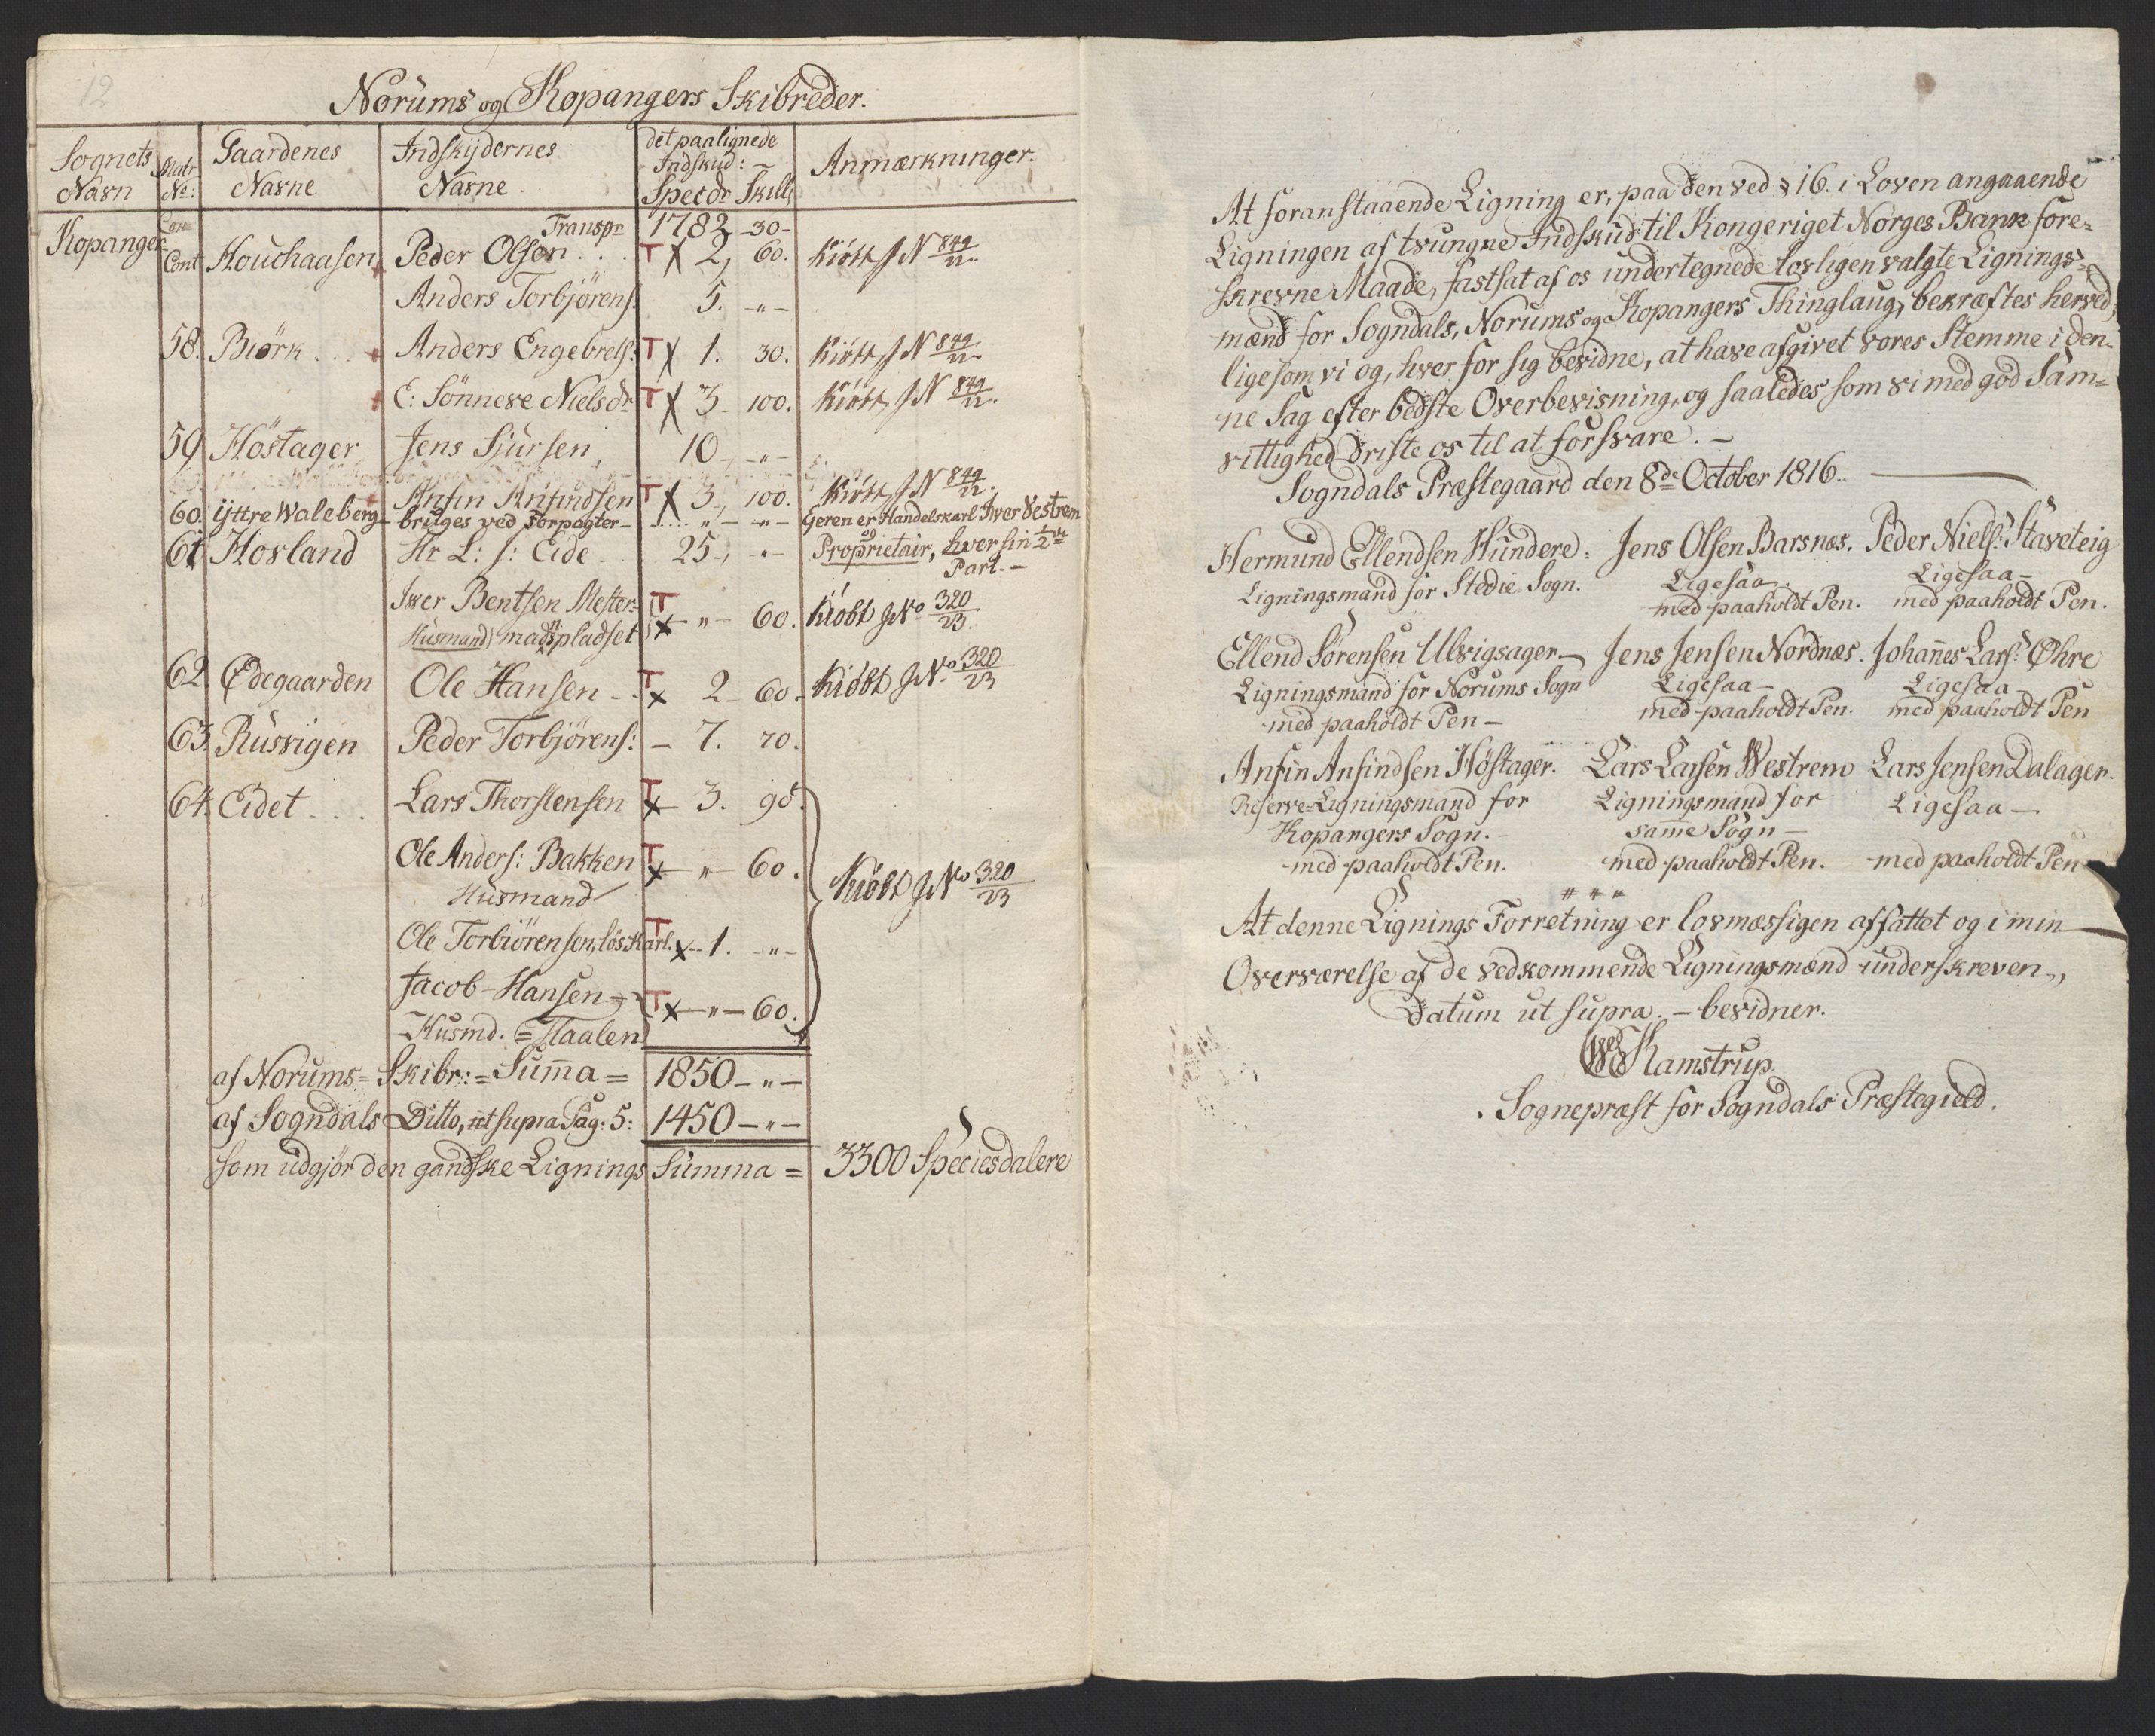 12
Norums og Kopangers Skibreder.
Sognets Navn Matr No: Gaardenes Navne Indskydernes Navne. det paalignede Indskud: Specdr Skill Anmærkninger.
Transpr 1782 - 30 -
Kopanger Cont Houchaasen Peder Olson . . . T X 2, 60. Kiöbt J N 849/22.
Anders Torbjörens: 5. - " -
58. Biörk . . . Anders Engebrets: T X 1. 30. Kiöbt J N 849/22.
E: Sönneve Nielsdr T X 3 - 100. Kiöbt J N 849/22.
59 Höstager Jens Sjursen 10 - " -
Anfin Anfindsen T X 3, 100. Kiöbt J N 849/22.
60. Yttre Waleberg - bruges ved Forpagter - . . . . " - " - Geren er Handelskarl Iver Vestrem
61 Hovland Hr L: s: Eide . . 25 - " - og Proprietair, hver sin 1/2de Part. -
Iver Bentsen Mester= T x - " - 60. Kiöbt J No 320/23.
Husmand) madspladset
62. Ödegaarden Ole Hansen - . T x 2 - 60 - Kiöbt J No. 320/23
63. Rusvigen Peder Torbjörens: - 7. 70.
64. Eidet . . . Lars Thorstensen T x - 3. 90.
Ole Anders: Bakken T x - " - 60.
Husmand Kiöbt J No 320/23
Ole Torbiörensen, lös Karl. T x - 1. - " -
Jacob Hansen T x - " - 60.
- Husmd. = Haalen
af Norums= Skibr: = Sum̄a = 1850 - " -
af Sogndals Ditto, ut supra Pag: 5: 1450 - " -
som udgjör den gandske Lignings Summa = 3300 Speciesdalere
At foranstaaende Ligning er, paa den ved § 16. i Loven angaaende
Ligningen af tvungne Indskud til Kongeriget Norges Bank fore=
skrevne Maade, fastsat af os undertegnede lovligen valgte Lignings=
mænd for Sogndals, Norums og Kopangers Thinglaug, bekræftes herved,
ligesom vi og, hver for sig bevidne, at have afgivet vores Stemme i den=
ne Sag efter bedste Overbevisning, og saaledes som vi med god Sam=
vittighed driste os til at forsvare. -
Sogndals Præstegaard den 8de October 1816..
Hermund Ellendsen Hundere: Jens Olsen Barsnæs. Peder Niels: Staveteig
Ligningsmand for Stedie Sogn. Ligesaa - Ligesaa -
med paaholdt Pen. med paaholdt Pen.
Ellend Sörensen Ulvigsager - Jens Jensen Nordnæs. Johan̄es Lars: Øhre
Ligningsmand for Norums Sogn Ligesaa - Ligesaa
med paaholdt Pen - med paaholdt Pen. med paaholdt Pen
Anfin Anfindsen Höstager. Lars Larsen Westrem Lars Jensen Dalager.
Reserve=Ligningsmand for Ligningsmand for Ligesaa -
Kopangers Sogn. - sam̄e Sogn -
med paaholdt Pen. med paaholdt Pen. med paaholdt Pen
At denne Lignings Forretning er lovmæssigen affattet og i min
Overværelse af de vedkommende Ligningsmænd underskreven,
Datum ut supra. - bevidner.
Kamstrup.
. Sognepræst for Sogndals Præstegield.